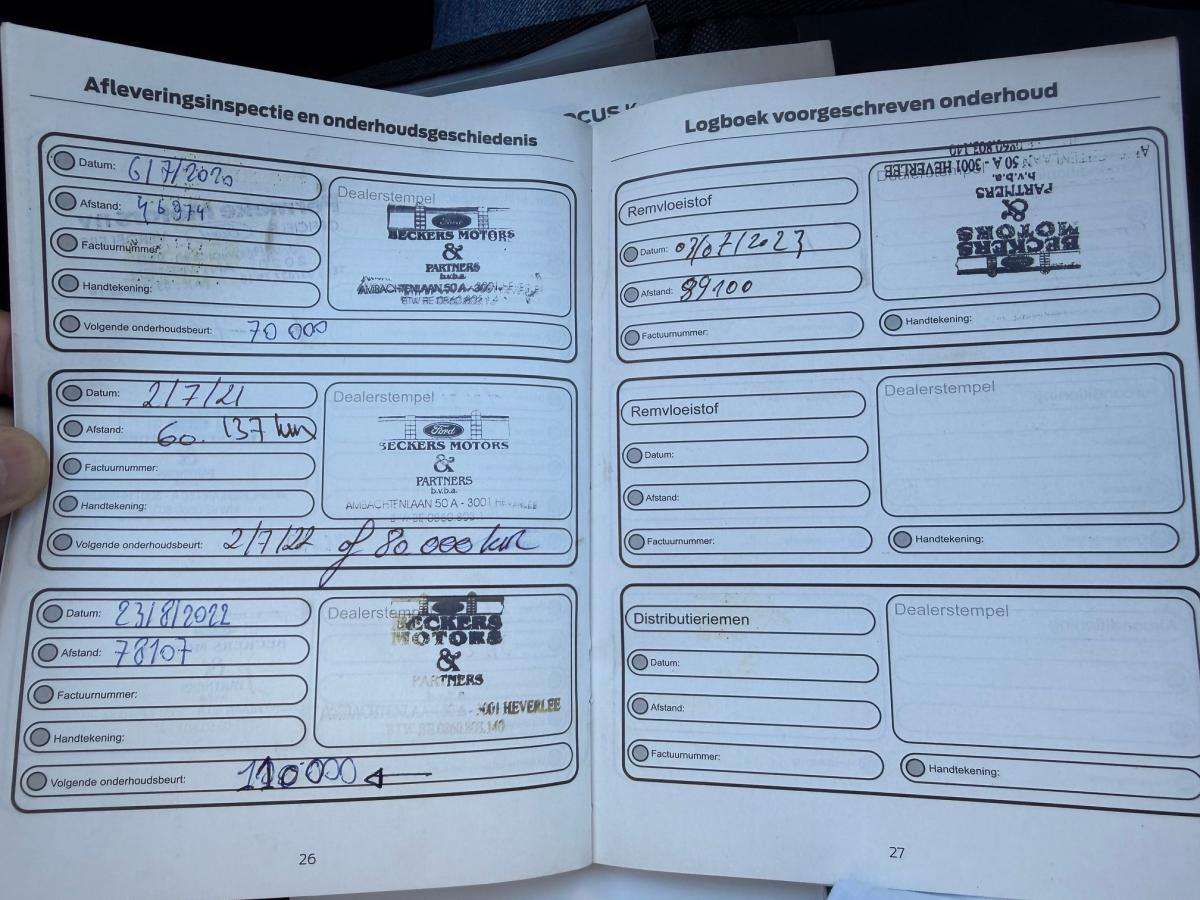 OCUS
Afleveringsinspectie en onderhoudsgeschiedenis
Datum: 6/7/2020
Afstand: 46974
Factuurnummer
Handtekening:
Volgende onderhoudsbeurt: 70 000
Dealerstempel
Ford
BECKERS MOTORS
&
PARTNERS
b.v.b.a.
AMBACHTENLAAN 50 A - 3001
Datum: 2/7/21
Afstand: 60.137 km
Factuurnummer:
Handtekening:
Volgende onderhoudsbeurt: 2/7/22 of 80 000 km
Dealerstempel
Ford
BECKERS MOTORS
&
PARTNERS
b.v.b.a.
AMBACHTENLAAN 50 A - 3001 HEVERLEE
Datum: 23/8/2022
Afstand: 78107
Factuurnummer:
Handtekening:
Volgende onderhoudsbeurt: 110000
Dealerstempel
BECKERS
MOTORS
&
PARTNERS
3001 HEVERLEE
26
Logboek voorgeschreven onderhoud
Remvloeistof
Datum: 03/07/2023
Afstand: 89100
Factuurnummer:
Dealerstempel
BECKERS
MOTORS
&
PARTNERS
b.v.b.a.
50 A - 3001 HEVERLEE
Handtekening:
Remvloeistof
Datum:
Afstand:
Factuurnummer:
Dealerstempel
Handtekening:
Distributieriemen
Datum:
Afstand:
Factuurnummer:
Dealerstempel
Handtekening:
27